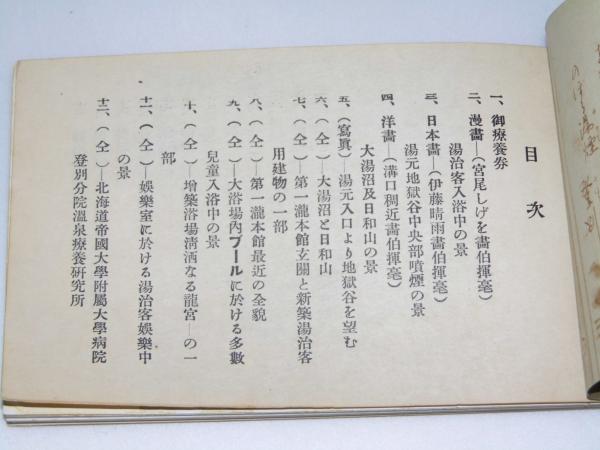 目次
一、御療養券
二、漫畵―(宮尾しげを畵伯揮毫)
湯治客入浴中の景
三、日本畵―(伊藤晴雨畵伯揮毫)
湯元地獄谷中央部噴煙の景
四、洋畵―(溝口稠近畵伯揮毫)
大湯沼及日和山の景
五、(寫眞)湯元入口より地獄谷を望む
六、(仝)―大湯沼と日和山
七、(仝)第一瀧本館玄關と新築湯治客
用建物の一部
八、(仝)第一瀧本館最近の全貌
九、(仝)―大浴場内プールに於ける多數
兒童入浴中の景
十、(仝)―增築浴場淸洒なる龍宮―の一
部
十一、(仝)―娛樂室に於ける湯治客娛樂中
の景
十二、(仝)―北海道帝國大學附屬大學病院
登別分院溫泉療養硏究所